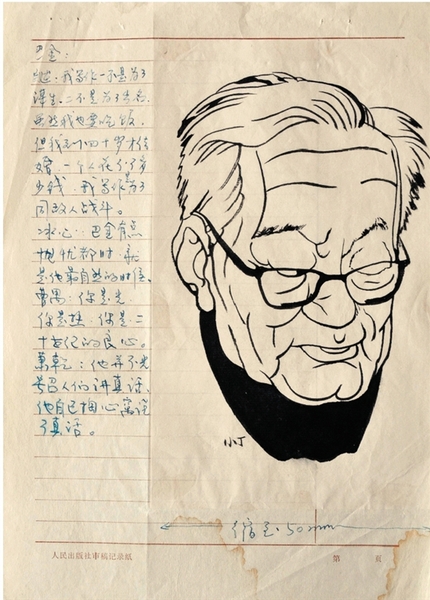 巴金:
我写作一不是为了
谋生,二不是为了出名,
虽然我也要吃饭,
但我到四十岁才结
婚,一个人花不了多
少钱。我写作是为了
同敌人战斗。
冰心:巴金有点
忧郁时,
是他最自然的时候。
曹禺:你是光
你是热,你是二
十世纪的良心。
萧乾:他并不光
号召人们讲真话,
他自己掏心窝说
了真话。
小丁
缩至:50mm
人民出版社审稿记录纸 第 页